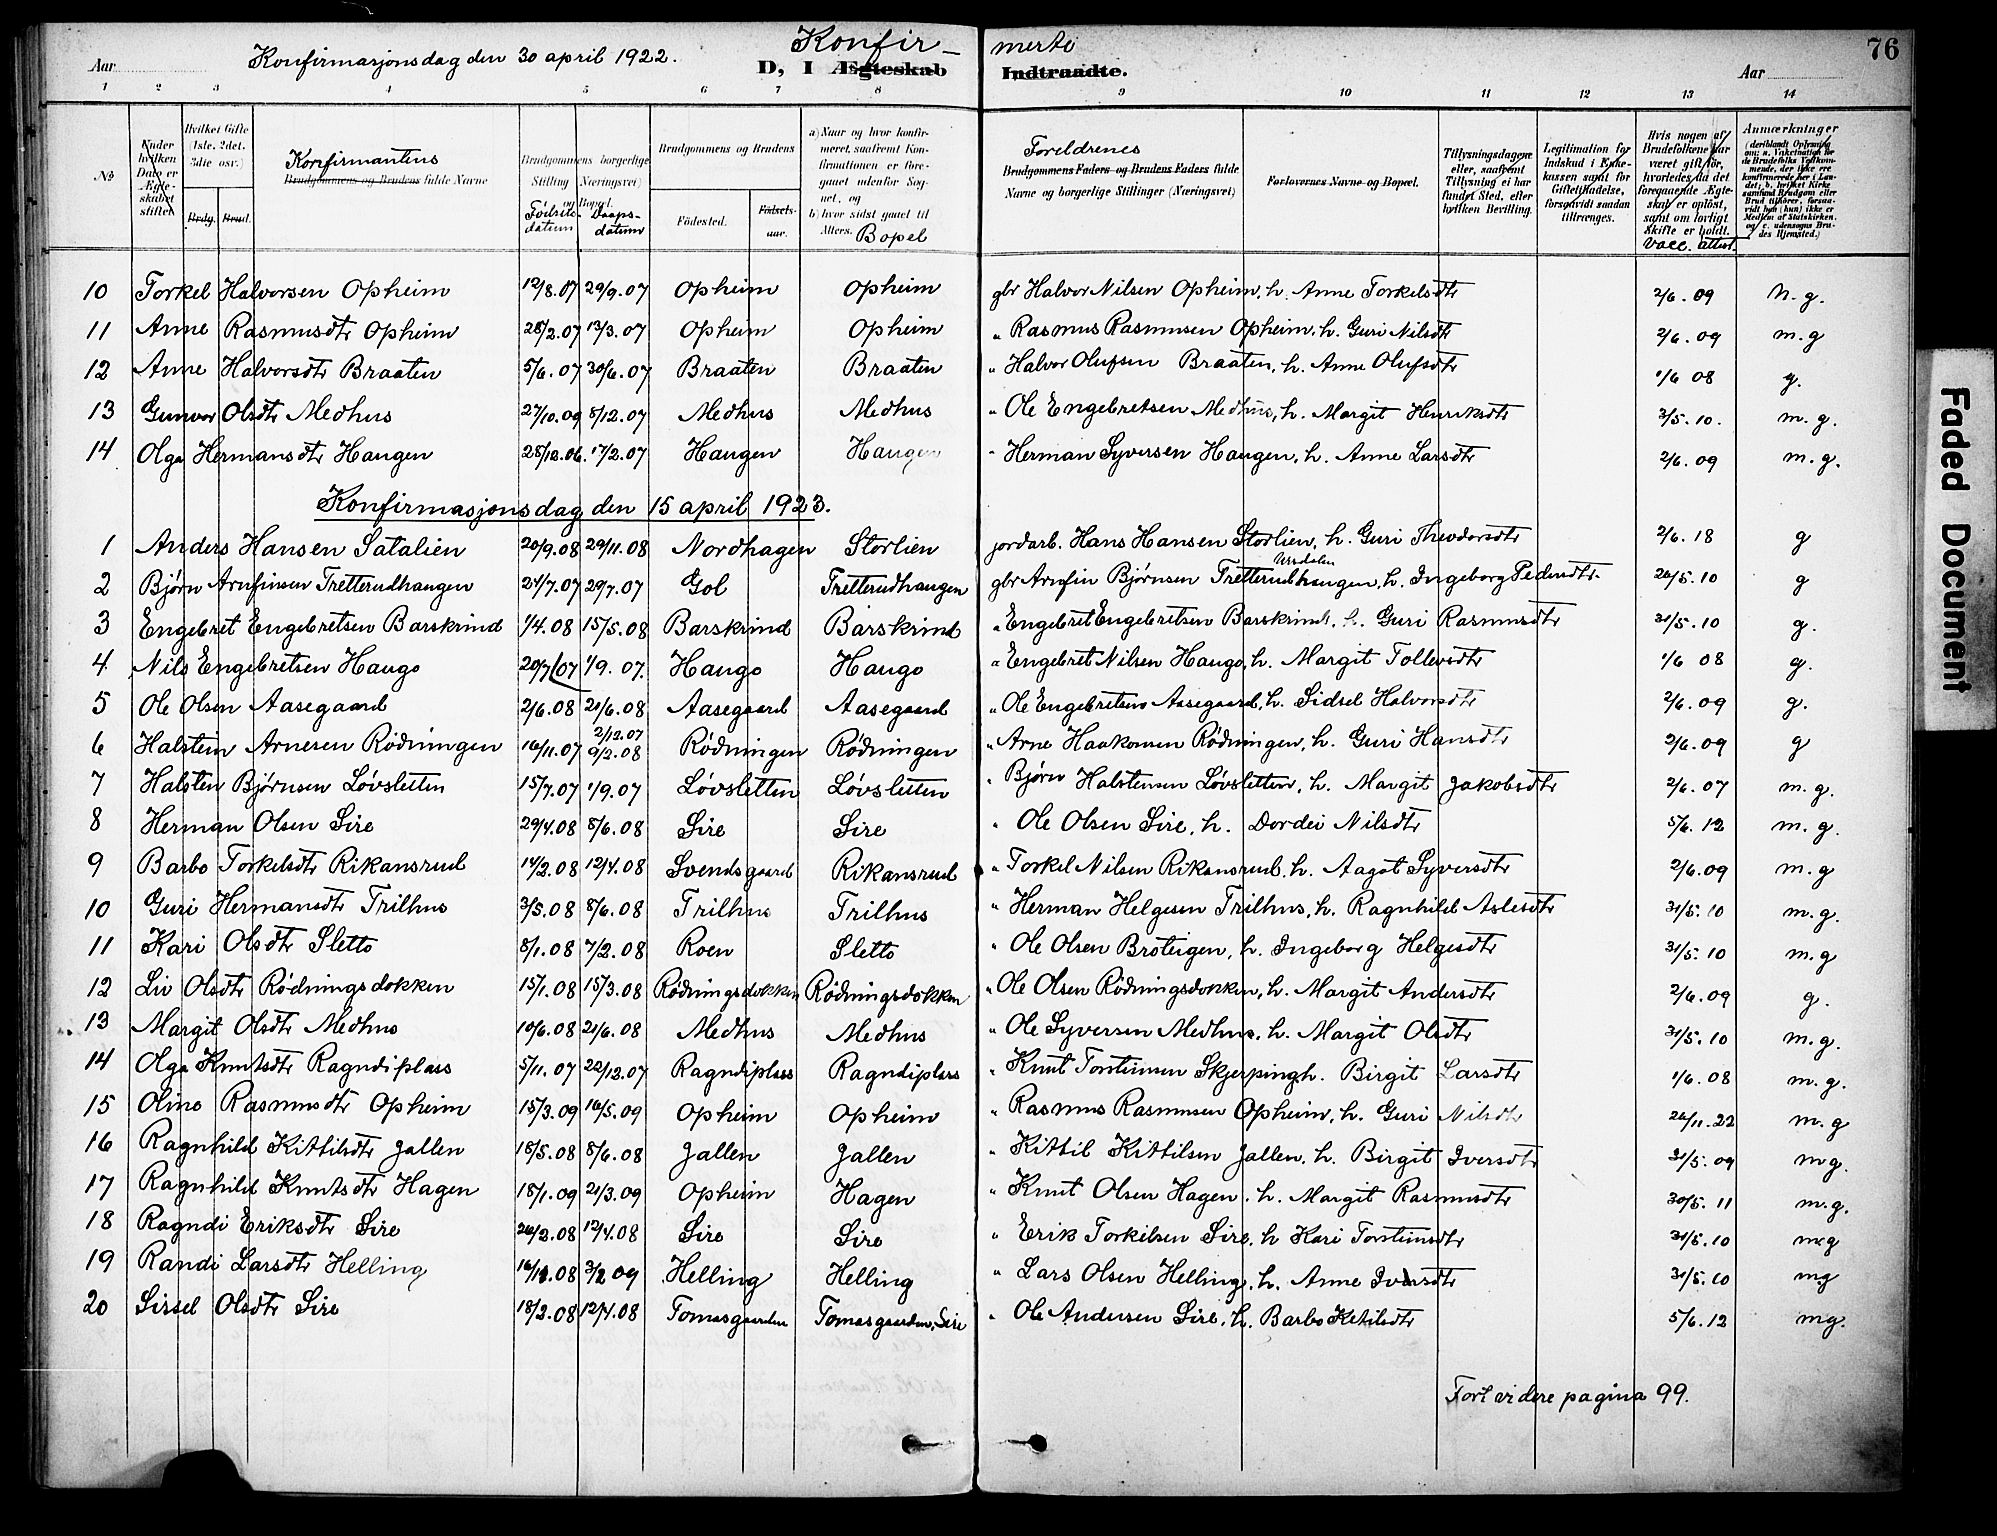 Aar
Konfirmasjonsdag den 30 april 1922.
Konfir-
D, I Ægteskab
merte
Indtraadte.
Aar
76
1 2 3 4 5 6 7 8 9 10 11 12 13 14
No
Under hvilken Dato er Ægteskabet stiftet
Hvilket Gifte (1ste. 2det. 3die osv.)
Brdg. Brud.
Konfirmantens
Brudgommens og Brudens fulde Navne
Brudgommens borgerlige Stilling (Næringsvei) og Bopæl.
Fødselsdatum Daapsdatum
Brudgommens og Brudens
Fødested. Fødselsaar.
a) Naar og hvor konfirmeret, saafremt Konfirmationen er foregaaet udenfor Sognet, og
b) hvor sidst gaaet til Alters. Bopel
Foreldrenes
Brudgommens Faders og Brudens Faders fulde Navne og borgerlige Stillinger (Næringsvei)
Forlovernes Navne og Bopæl.
Tillysningsdagene eller, saafremt Tillysning ei har fundet Sted, efter hvilken Bevilling.
Legitimation for Indskud i Enkekassen samt for Giftetilladelse, forsaavidt saadan tiltrænges.
Hvis nogen af Brudefolkene har været gift før, hvorledes da det foregaaende Ægteskab er opløst, samt om lovligt Skifte er holdt.
Vacc. attest.
Anmærkninger (deriblandt Oplysning om: a. Vakcination for de Brudefolks Vedkommende, der ikke ere konfirmerede her i Landet; b. hvilket Kirkesamfund Brudgom eller Brud tilhører, forsaavidt han (hun) ikke er Medlem af Statskirken. og c. udensogns Brudes Hjemsted.)
10 Torkel Halvorsen Opheim 12/8.07 29/9.07 Opheim Opheim gbr Halvor Nilsen Opheim, h. Anne Torkelsdtr 2/6.09 N.g.
11 Anne Rasmusdtr Opheim 28/2.07 13/3.07 Opheim Opheim " Rasmus Rasmusen Opheim, h. Guri Nilsdtr 2/6.09 m.g
12 Anne Halvorsdtr Braaten 5/6.07 30/6.07 Braaten Braaten " Halvor Olufsen Braaten, h. Anne Olufsdtr 1/6 08 g.
13 Gunvor Olsdtr Medhus 27/10.09 8/12.07 Medhus Medhus " Ole Engebretsen Medhus, h. Margit Henriksdtr 3/5.10. m.g.
14 Olga Hermansdtr Haugen 28/12.06. 17/2.07 Haugen Haugen " Herman Syversen Haugen, h. Anne Larsdtr 2/6.09 m.g.
Konfirmasjonsdag den 15 april 1923.
1 Anders Hansen Satalien 20/9.08 29/11.08 Nordhagen Storlien jordarb. Hans Hansen Storlien, h. Guri Theodorsdtr 2/6.18 g
2 Bjørn Arnfinsen Tretterudhaugen 24/7.07 29/7.07 Gol Tretterudhaugen gbr Arnfin Bjørnsen Tretterudhaugen, h. Ingeborg Pedersdtr. 26/5.10 g
3 Engebret Engebretsen Barskrind 1/4.08 15/5.08 Barskrind Barskrind " Engebret Engebretsen Barskrind, h. Guri Rasmusdtr 31/5.10 g.
4 Nils Engebretsen Haugo 20/7/07 1/9.07. Haugo Haugo " Engebret Nilsen Haugo, h. Margit Tollevsdtr 1/6 08 g.
5 Ole Olsen Aasegaard 2/6.08 21/6.08 Aasegaard Aasegaard " Ole Engebretsen Aasegaard, h. Sidsel Halvorsdtr 2/6.09 g.
6 Halstein Arnesen Rödningen 16/11.07 2/12.07 9/2.08 Rödningen Rödningen " Arne Haakonsen Rödningen, h. Guri Hansdtr 2/6.09 g
7 Halsten Bjørnsen Løvsletten 15/7.07 1/9.07 Løvsletten Løvsletten " Bjørn Halstensen Løvsletten, h. Margit Jakobsdtr 2/6.07 m.g.
8 Herman Olsen Sire 29/4.08 8/6.08 Sire Sire " Ole Olsen Sire, h. Dordei Nilsdtr 5/6.12 m.g.
9 Barbo Torkelsdtr Rikansrud 14/2.08 12/4.08 Svendsgaard Rikansrud " Torkel Nilsen Rikansrud, h. Aagot Syversdtr 2/6.09 m.g
10 Guri Hermansdtr Trilhus 3/5.08 8/6.08 Trilhus Trilhus " Herman Helgesen Trilhus, h. Ragnhild Aslesdtr 31/5.10 m.g.
11 Kari Olsdtr Sletto 8/1.08 7/2.08 Roen Sletto " Ole Olsen Broteigen, h. Ingeborg Helgesdtr 31/5.10 m.g
12 Liv Olsdtr Rødningsdokken 15/1.08 15/3.08 Rødningsdokken Rødningsdokken " Ole Olsen Rødningsdokken, h. Margit Andersdtr 2/6.09 g.
13 Margit Olsdtr Medhus 10/6.08 21/6.08 Medhus Medhus " Ole Syversen Medhus, h. Margit Olsdtr 31/5.10 m.g.
14 Olga Knutsdtr Ragndiplass 5/11.07 22/12.07 Ragndiplass Ragndiplass " Knut Torsteinsen Skjerping h. Birgit Larsdtr 1/6.08 m.g.
15 Oline Rasmusdtr Opheim 15/3.09 16/5.09 Opheim Opheim " Rasmus Rasmusen Opheim, h. Guri Nilsdtr 26/11.22 m.g
16 Ragnhild Kittilsdtr Jallen 18/5.08 8/6.08 Jallen Jallen " Kittil Kittilsen Jallen, h. Birgit Iversdtr 31/5.09 mg.
17 Ragnhild Knutsdtr Hagen 18/1.09 21/3.09 Opheim Hagen " Knut Olsen Hagen, h. Margit Rasmusdtr 30/5.11 m.g.
18 Ragndi Eriksdtr Sire 26/2.08 12/4.08 Sire Sire " Erik Torkilsen Sire, h Kari Torsteinsdtr 31/5.10 mg
19 Randi Larsdtr Helling 16/12.08 3/2 09 Helling Helling " Lars Olsen Helling, h. Anne Iversdtr 31/5.10 mg
20 Sissel Olsdtr Sire 18/2.08 12/4.08 Tomasgaarden Tomasgaarden, Sire " Ole Andersen Sire, h. Barbo Ketilsdtr 5/6.12 mg.
Fort videre pagina 99.
Faded Document